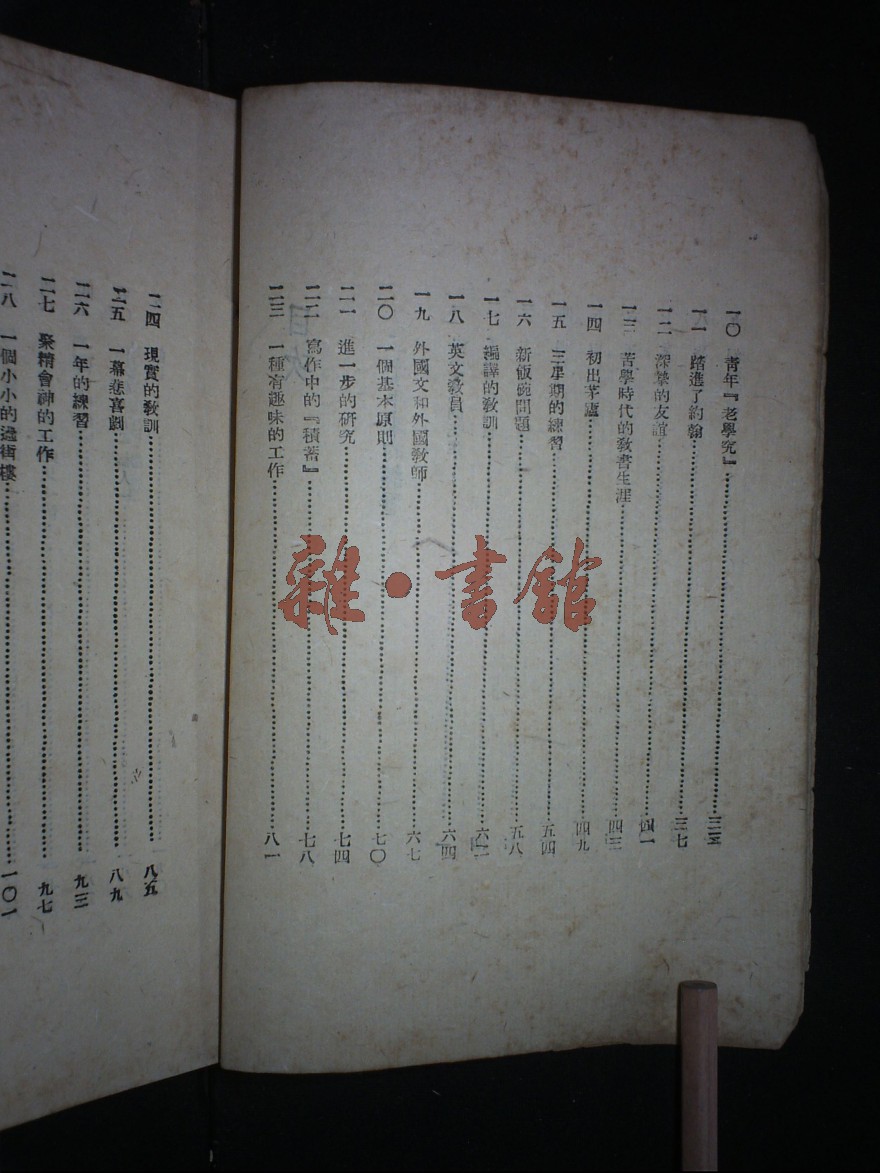 一〇 青年『老學究』 三四
一一 踏進了約翰 三七
一二 深摯的友誼 四一
一三 苦學時代的教書生涯 四三
一四 初出茅廬 四九
一五 三星期的練習 五四
一六 新飯碗問題 五八
一七 編譯的教訓 六二
一八 英文教員 六四
一九 外國文和外國教師 六七
二〇 一個基本原則 七〇
二一 進一步的研究 七四
二二 寫作中的『積蓄』 七八
二三 一種有趣味的工作 八一
二四 現實的教訓 八五
二五 一幕悲喜劇 八九
二六 一年的練習 九三
二七 聚精會神的工作 九七
二八 一個小小的過街樓 一〇一
雜·書館